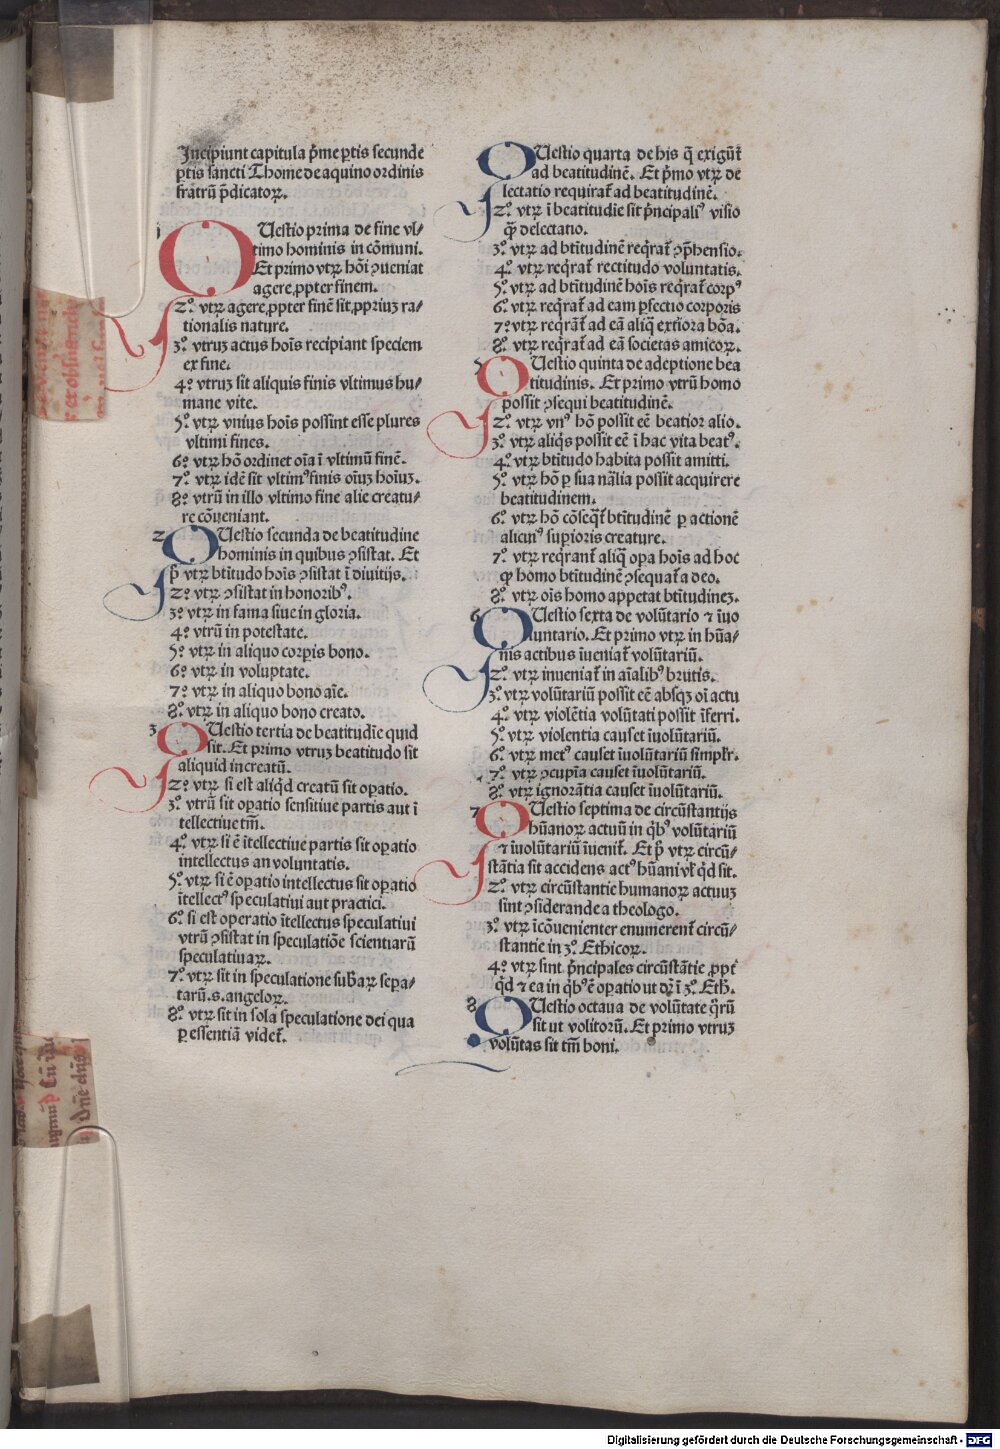 Incipiunt capitula p̄me ꝑtis secunde
ꝑtis sancti Thome de aquino ordinis
fratrū p̄dicatoꝝ.
1
QUestio prima de fine vl/
timo hominis in cōmuni.
Et primo vtꝝ hōi ꝯueniat
agere ꝓpter finem.
2º vtꝝ agere ꝓpter finē sit ꝓpriuꝫ ra/
tionalis nature.
3º vtruꝫ actus hoīs recipiant speciem
ex fine.
4º vtruꝫ sit aliquis finis vltimus hu/
mane vite.
5º vtꝝ vnius hoīs possint esse plures
vltimi fines.
6º vtꝝ hō ordinet oīa ī vltimū finē.
7º vtꝝ idē sit vltimꝰ finis oīuꝫ hoīuꝫ.
8º vtrū in illo vltimo fine alie creatu/
re cōueniant.
2
QUestio secunda de beatitudine
hominis in quibus ꝯsistat. Et
p̄ vtꝝ btītudo hoīs ꝯsistat ī diuitijs.
2º vtꝝ ꝯsistat in honoribꝰ.
3º vtꝝ in fama siue in gloria.
4º vtrū in potestate.
5º vtꝝ in aliquo corꝑis bono.
6º vtꝝ in voluptate.
7º vtꝝ in aliquo bono aīe.
8º vtꝝ in aliquo bono creato.
3
QUestio tertia de beatitudīe quid
sit. Et primo vtruꝫ beatitudo sit
aliquid increatū.
2º vtꝝ si est aliqͥd creatū sit oꝑatio.
3º vtrū sit oꝑatio sensitiue partis aut ī
tellectiue tm̄.
4º vtꝝ si ē ītellectiue partis sit oꝑatio
intellectus an voluntatis.
5º vtꝝ si ē oꝑatio intellectus sit oꝑatio
ītellectꝰ speculatiui aut practici.
6º si est operatio ītellectus speculatiui
vtrū ꝯsistat in speculatiōe scientiarū
speculatiuaꝝ.
7º vtꝝ sit in speculatione sub̄aꝝ sepa/
tarū .s. angeloꝝ.
8º vtꝝ sit in sola speculatione dei qua
ꝑ essentiā videt᷑.
QUestio quarta de his q̄ exigūt᷑
ad beatitudinē. Et p̄mo vtꝝ de
lectatio requirat᷑ ad beatitudinē.
2º vtꝝ ī beatitudīe sit p̄ncipaliꝰ visio
ꝙ̄ delectatio.
3º vtꝝ ad btītudinē reqͥrat᷑ ꝯp̄hensio.
4º vtꝝ reqͥrat᷑ rectitudo voluntatis.
5º vtꝝ ad btītudinē hoīs reqͥrat᷑ corpꝰ
6º vtꝝ reqͥrat᷑ ad eam ꝑfectio corporis
7º vtꝝ reqͥrat᷑ ad eā aliq̄ exteriora bōa.
8º vtꝝ reqͥrat᷑ ad eā societas amicoꝝ.
5
QUestio quinta de adeptione bea
titudinis. Et primo vtrū homo
possit ꝯsequi beatitudinē.
2º vtꝝ vnꝰ hō possit eē beatior alio.
3º vtꝝ aliqͥs possit eē ī hac vita beatꝰ.
4º vtꝝ btītudo habita possit amitti.
5º vtꝝ hō ꝑ sua nāļia possit acquirere
beatitudinem.
6º vtꝝ hō cōseqͣt᷑ btītudinē ꝑ actionē
alicuiꝰ suꝑioris creature.
7º vtꝝ reqͥrant᷑ aliq̄ oꝑa hoīs ad hoc
ꝙ homo btītudinē ꝯsequat᷑ a deo.
8º vtꝝ oīs homo appetat btītudineꝫ.
6
QUestio sexta de volūtario ⁊ īuo
luntario. Et primo vtꝝ in hūa/
nis actibus īueniat᷑ volūtariū.
2º vtꝝ inueniat᷑ in aīalibꝰ brutis.
3º vtꝝ voluntariū possit eē absqꝫ oī actu
4º vtꝝ violētia volūtati possit īferri.
5º vtꝝ violentia causet īuolūtariū.
6º vtꝝ metꝰ causet īuolūtariū simpłr.
7º vtꝝ ꝯcupīa causet īuolūtariū.
8º vtꝝ ignorātia causet īuolūtariū.
7
QUestio septima de circūstantijs
hūanoꝝ actuū in qͥbꝰ volūtariū
⁊ īuolūtariū īuenit᷑. Et p̄ vtꝝ circū/
stātia sit accidens actꝰ hūani vł qͥd sit.
2º vtꝝ circūstantie humanoꝝ actuuꝫ
sint ꝯsiderande a theologo.
3º vtꝝ īcōuenienter enumerent᷑ circū/
stantie in 3º Ethicoꝝ.
4º vtꝝ sint p̄ncipales circūstātie ꝓpt᷑
qͥd ⁊ ea in qͥbꝰ ē oꝑatio ut dr̄ ī 3º Eth̄.
8
QUestio octaua de volūtate qͣrū
sit ut volitorū. Et primo vtruꝫ
volūtas sit tm̄ boni.
Digitalisierung gefördert durch die Deutsche Forschungsgemeinschaft - DFG